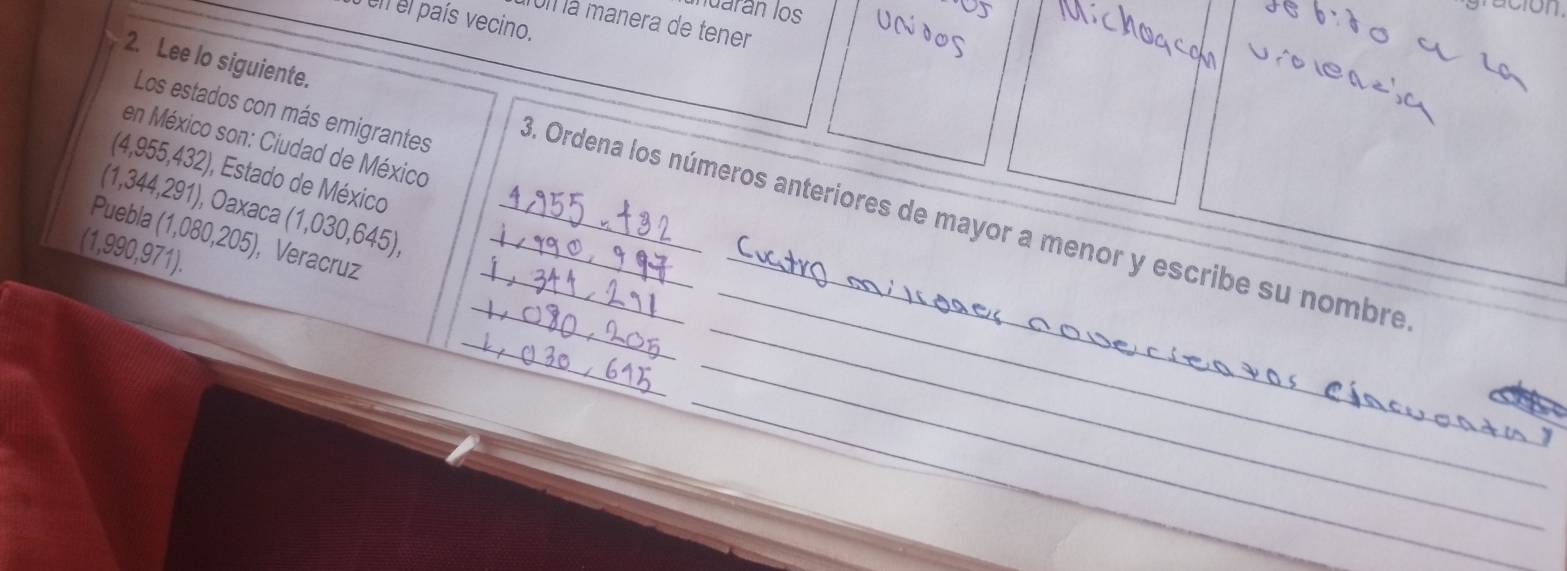 en el país vecino.
la manera de tener
los
Unidos
Michoacan
debido a la
violencia
2. Lee lo siguiente.
Los estados con más emigrantes
en México son: Ciudad de México
(4,955,432), Estado de México
(1,344,291), Oaxaca (1,030,645),
Puebla (1,080,205), Veracruz
(1,990,971).
3. Ordena los números anteriores de mayor a menor y escribe su nombre.
4,955,432
1,990,997
1,344,291
1,080,205
1,030,645
Cuatro millones novecientos cincuenta y